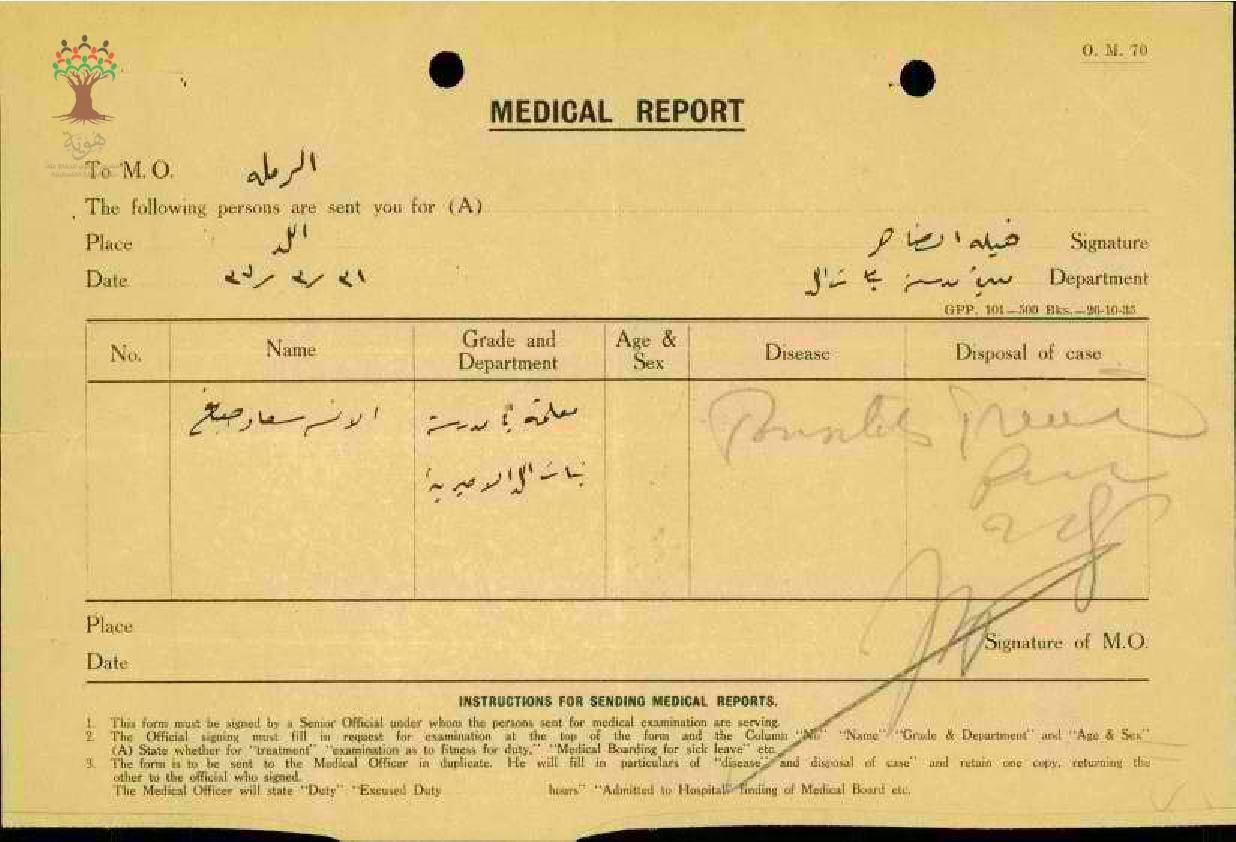 O. M. 70
هوية
MEDICAL REPORT
To M. O. الرمله
The following persons are sent you for (A)
Place اللد
Signature
Date ٣١ / ٣ / ٣٦
Department مدرسة بنات اللد
GPP. 101—500 Bks.—26-10-35
No. Name Grade and Department Age & Sex Disease Disposal of case
الانسه سعاد صباغ
معلمة في مدرسة
بنات اللد الاميرية
Place
Signature of M.O.
Date
INSTRUCTIONS FOR SENDING MEDICAL REPORTS.
1. This form must be signed by a Senior Official under whom the persons sent for medical examination are serving.
2. The Official signing must fill in request for examination at the top of the form and the Column "No" "Name" "Grade & Department" and "Age & Sex"
(A) State whether for "treatment" "examination as to fitness for duty," "Medical Boarding for sick leave" etc.
3. The form is to be sent to the Medical Officer in duplicate. He will fill in particulars of "disease" and disposal of case" and retain one copy, returning the
other to the official who signed.
The Medical Officer will state "Duty" "Excused Duty hours" "Admitted to Hospital" finding of Medical Board etc.